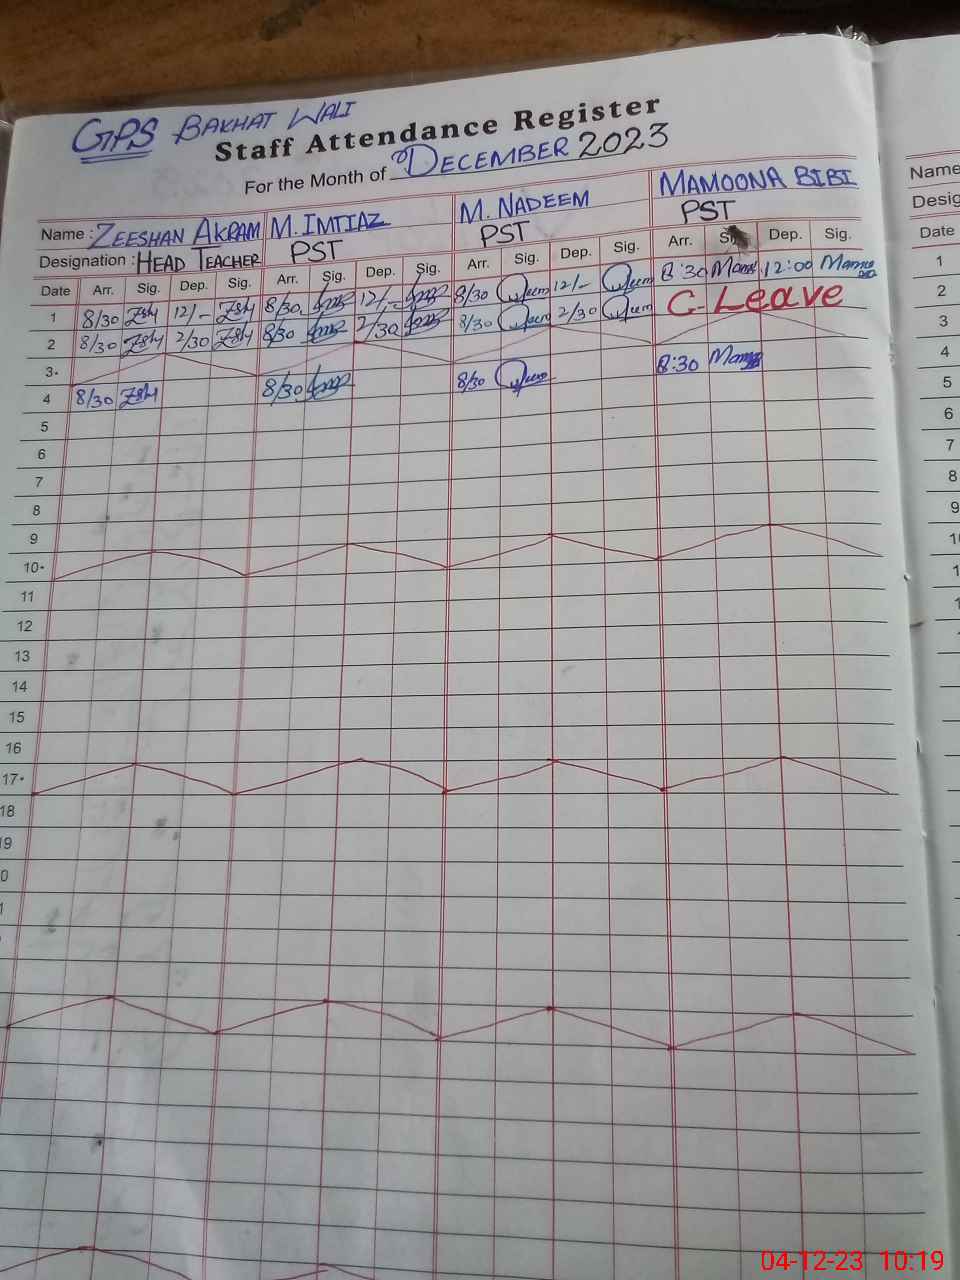 GPS BAKHAT WALI
Staff Attendance Register
For the Month of DECEMBER 2023
Name : ZEESHAN AKRAM M. IMTIAZ M. NADEEM MAMOONA BIBI
Designation : HEAD TEACHER PST PST PST
Date Arr. Sig. Dep. Sig. Arr. Sig. Dep. Sig. Arr. Sig. Dep. Sig. Arr. Dep. Sig.
1 8/30 12/- 8/30 12/- 8/30 12/- 8:30 12:00
2 8/30 2/30 8/30 2/30 8/30 2/30 C-Leave
3
4 8/30 8/30 8/30 8:30
5
6
7
8
9
10
11
12
13
14
15
16
17
18
Name
Desig
Date
1
2
3
4
5
6
7
8
9
04-12-23 10:19